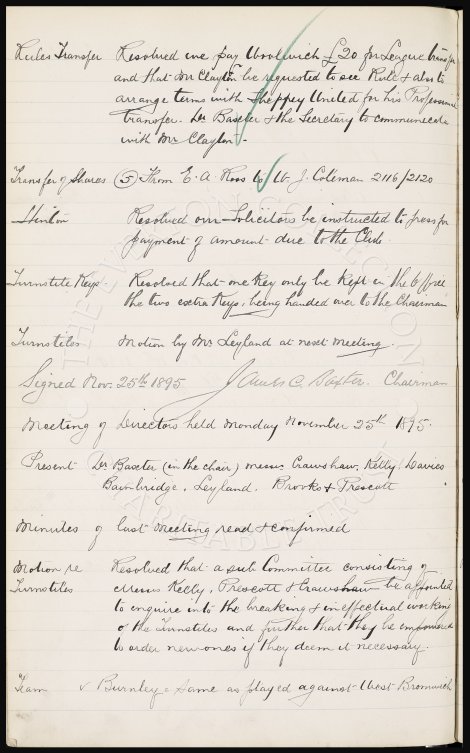 Rules Transfer Resolved we pay Woolwich £20 for League transfer
and that Mr Clayton be requested to see Rule & also to
arrange terms with Sheppey United for his Professional
transfer. Dr Baxter & the Secretary to communicate
with Mr Clayton.
Transfer of Shares (5) From E. A. Ross to W. J. Coleman 2116/2120
Hinton Resolved our Solicitors be instructed to press for
payment of amount due to the Club.
Turnstile Keys. Resolved that one Key only be kept in the Office
the two extra Keys, being handed over to the Chairman
Turnstiles Motion by Mr Leyland at next meeting.
Signed Nov. 25th 1895 James C. Baxter. Chairman
Meeting of Directors held Monday November 25th 1895.
Present Dr Baxter (in the chair) messrs Crawshaw, Kelly, Davies
Bainbridge, Leyland, Brooks & Prescott
Minutes of last Meeting read & confirmed
Motion re Resolved that a sub Committee consisting of
Turnstiles Messrs Kelly, Prescott & Crawshaw be appointed
to enquire into the breaking & ineffectual working
of the Turnstiles and further that they be empowered
to order new ones if they deem it necessary.
Team v Burnley = same as played against West Bromwich